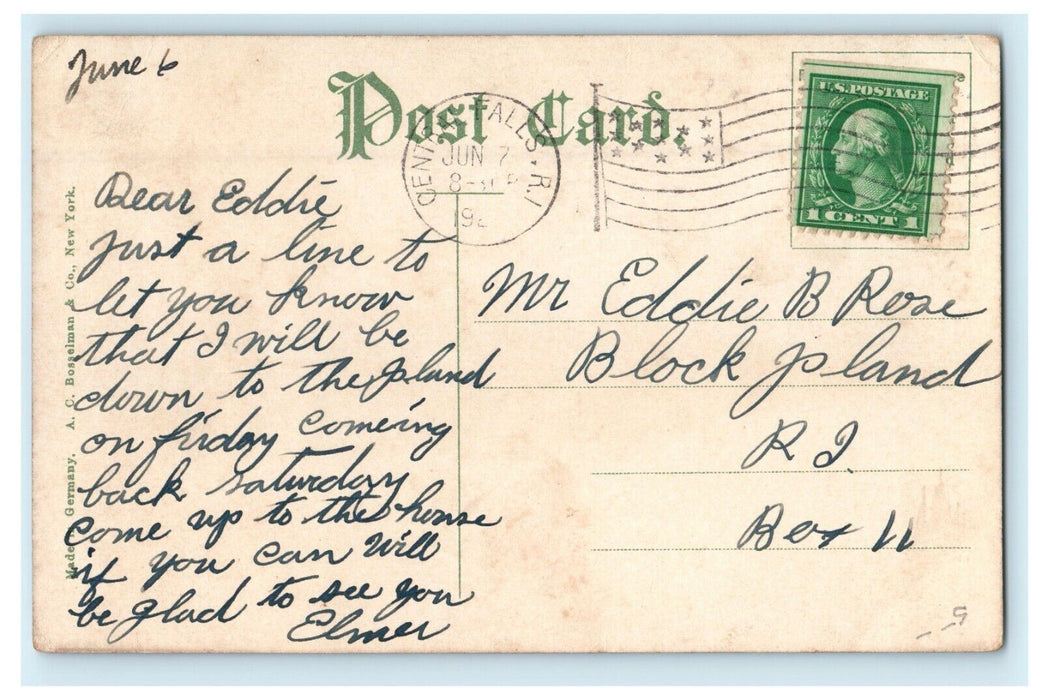 June 6
Post Card.
CENTRAL FALLS. R.I.
JUN 7
8-30 P
192
U.S. POSTAGE
1 CENT 1
Dear Eddie
just a line to
let you know
that I will be
down to the Island
on firday comeing
back saturday
come up to the house
if you can will
be glad to see you
Elmer
Mr Eddie B Rose
Block Island
R I.
Box 11
Made Germany, A. C. Bosselman & Co., New York.
9